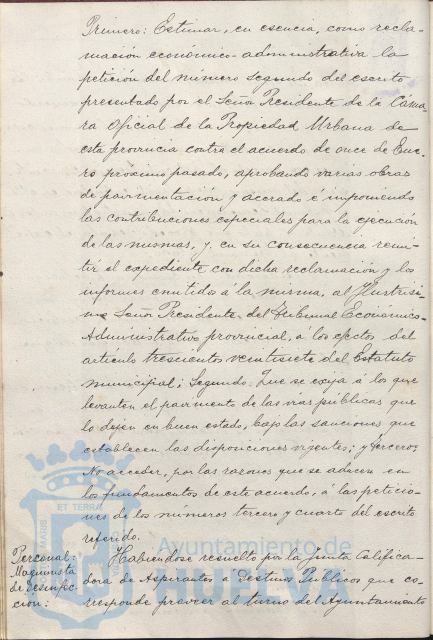 Primero: Estimar, en esencia, como recla-
mación económico-administrativa la
petición del número segundo del escrito
presentado por el Señor Presidente de la Cáma-
ra Oficial de la Propiedad Urbana de
esta provincia contra el acuerdo de once de Ene-
ro próximo pasado, aprobando varias obras
de pavimentación y acerado é imponiendo
las contribuciones especiales para la ejecución
de las mismas, y, en su consecuencia remi-
tir el expediente con dicha reclamación y los
informes emitidos á la misma, al Ilustrísi-
mo Señor Presidente del Tribunal Económico-
Administrativo provincial, a los efectos del
artículo trescientos veintisiete del Estatuto
municipal; Segundo: Que se exija a los que
levanten el pavimento de las vías públicas que
lo dejen en buen estado, bajo las sanciones que
establecen las disposiciones vigentes; y tercero:
No acceder, por las razones que se aducen en
los fundamentos de este acuerdo, á las peticio-
nes de los números tercero y cuarto del escrito
referido.
Personal:
Maquinista
de desinfec-
ción:
Habiéndose resuelto por la Junta Califica-
dora de Aspirantes a Destinos Públicos que co-
rresponde proveer al turno del Ayuntamiento
ET TERRA
Ayuntamiento de
HUELVA